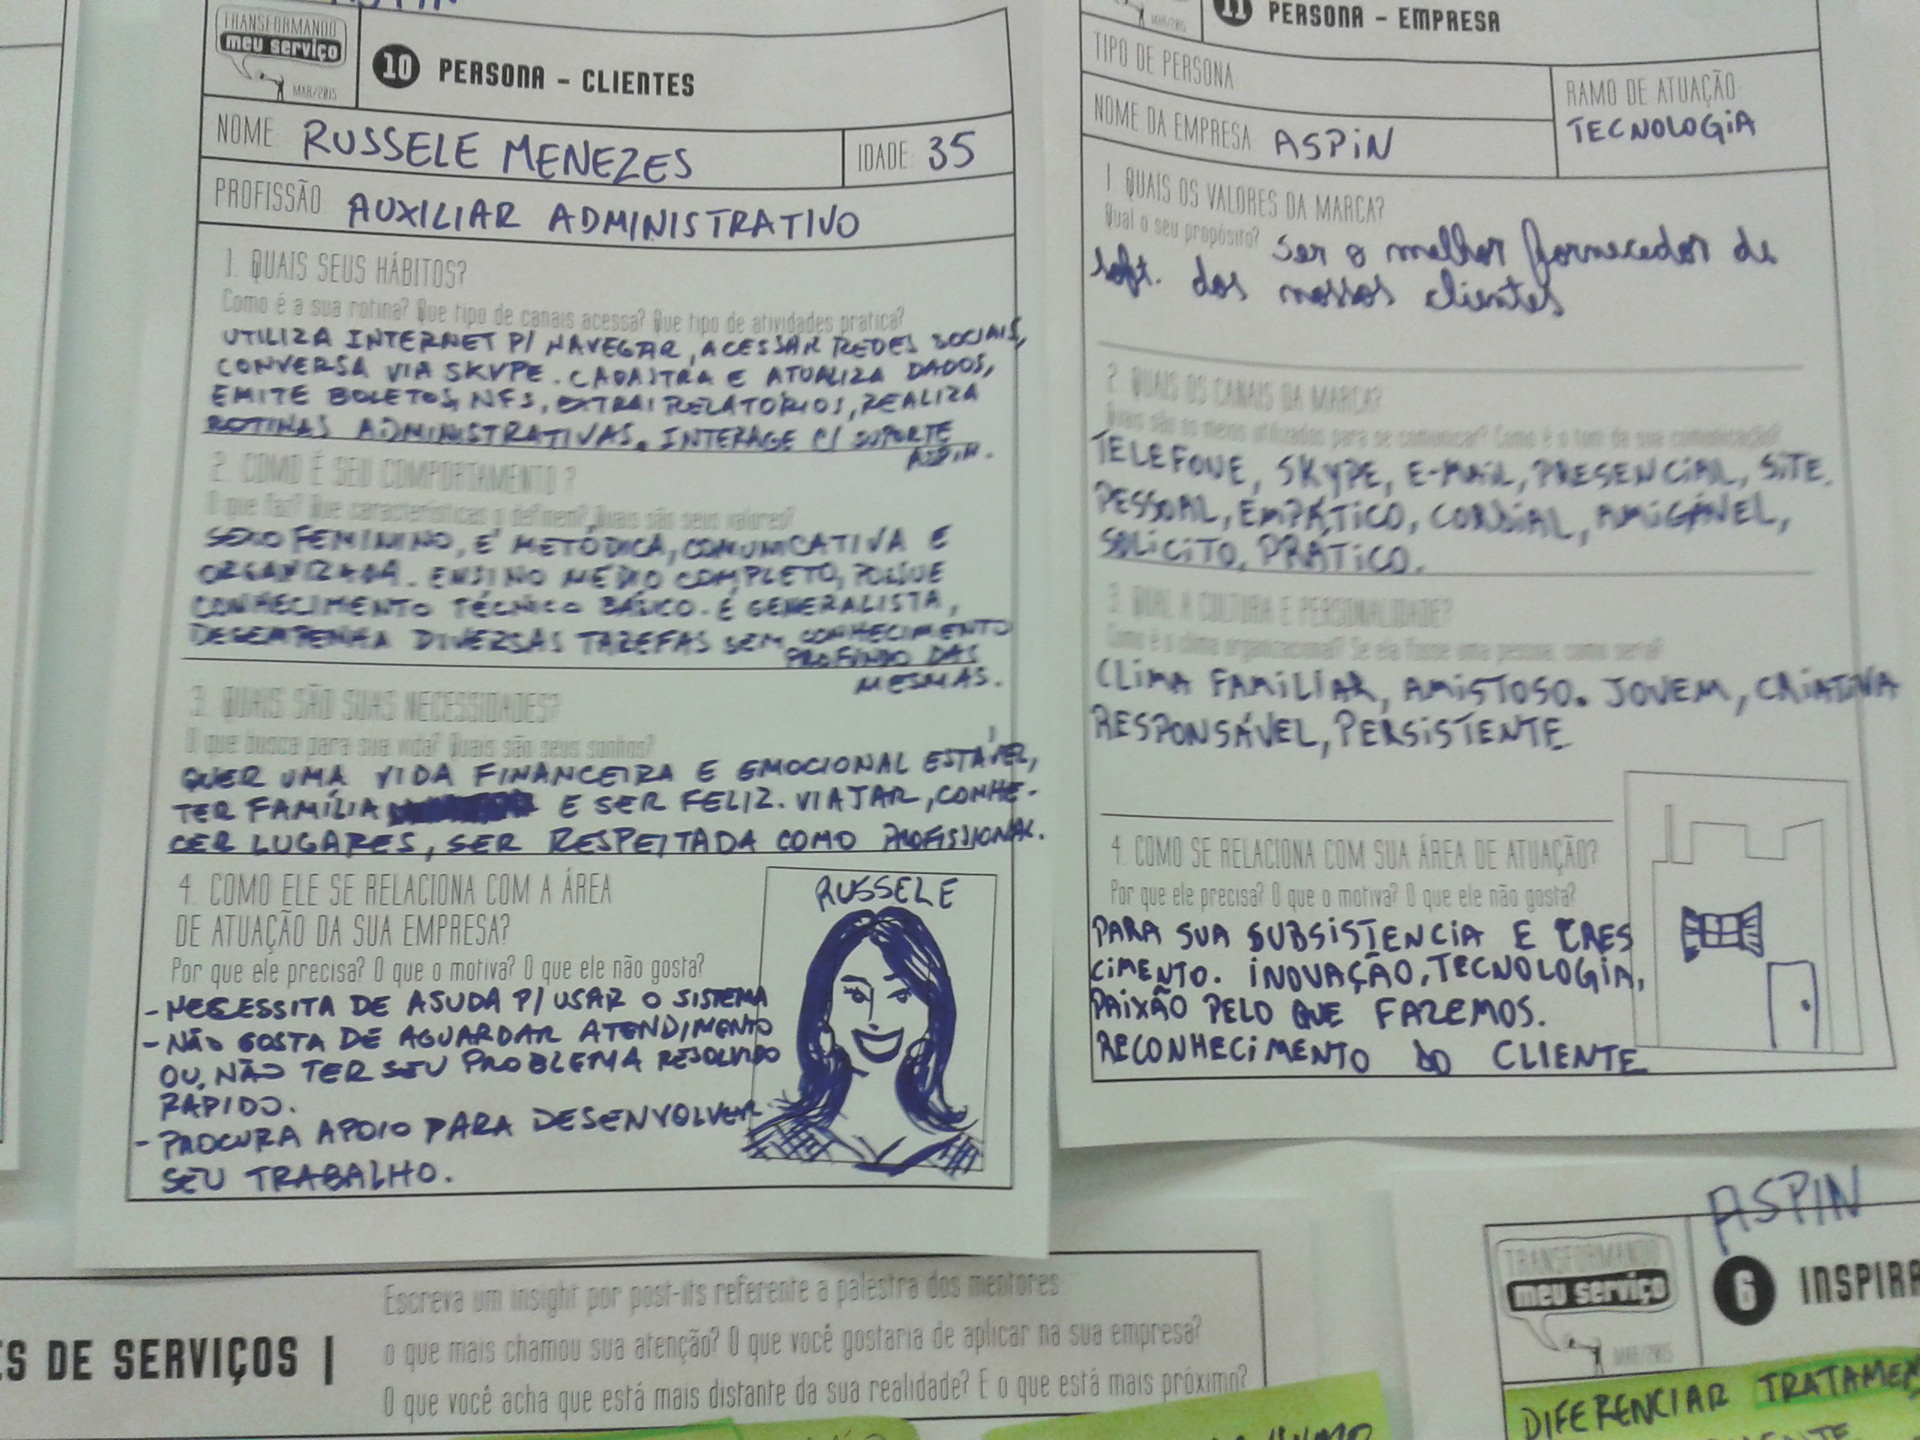 ASPIN
TRANSFORMANDO
meu serviço
MAR/2015
10 PERSONA - CLIENTES
NOME: RUSSELE MENEZES
IDADE: 35
PROFISSÃO: AUXILIAR ADMINISTRATIVO
1. QUAIS SEUS HÁBITOS?
Como é a sua rotina? Que tipo de canais acessa? Que tipo de atividades pratica?
UTILIZA INTERNET P/ NAVEGAR, ACESSAR REDES SOCIAIS,
CONVERSA VIA SKYPE. CADASTRA E ATUALIZA DADOS,
EMITE BOLETOS, NFS, EXTRAI RELATÓRIOS, REALIZA
ROTINAS ADMINISTRATIVAS. INTERAGE C/ SUPORTE
ASPIN.
2. COMO É SEU COMPORTAMENTO?
O que faz? Que características o definem? Quais são seus valores?
SEXO FEMININO, É METÓDICA, COMUNICATIVA E
ORGANIZADA. ENSINO MÉDIO COMPLETO, POSSUE
CONHECIMENTO TÉCNICO BÁSICO. É GENERALISTA,
DESEMPENHA DIVERSAS TAREFAS SEM CONHECIMENTO
PROFUNDO DAS
MESMAS.
3. QUAIS SÃO SUAS NECESSIDADES?
O que busca para sua vida? Quais são seus sonhos?
QUER UMA VIDA FINANCEIRA E EMOCIONAL ESTÁVEL,
TER FAMÍLIA E SER FELIZ. VIAJAR, CONHE-
CER LUGARES, SER RESPEITADA COMO PROFISSIONAL.
4. COMO ELE SE RELACIONA COM A ÁREA
DE ATUAÇÃO DA SUA EMPRESA?
Por que ele precisa? O que o motiva? O que ele não gosta?
- NECESSITA DE AJUDA P/ USAR O SISTEMA
- NÃO GOSTA DE AGUARDAR ATENDIMENTO
OU NÃO TER SEU PROBLEMA RESOLVIDO
RAPIDO.
- PROCURA APOIO PARA DESENVOLVER
SEU TRABALHO.
RUSSELE
11 PERSONA - EMPRESA
TIPO DE PERSONA
NOME DA EMPRESA: ASPIN
RAMO DE ATUAÇÃO:
TECNOLOGIA
1. QUAIS OS VALORES DA MARCA?
Qual o seu propósito? Ser o melhor fornecedor de
soft. dos nossos clientes
2. QUAIS OS CANAIS DA MARCA?
Quais são os meios utilizados para se comunicar? Como é o tom da sua comunicação?
TELEFONE, SKYPE, E-MAIL, PRESENCIAL, SITE.
PESSOAL, EMPÁTICO, CORDIAL, AMIGÁVEL,
SOLICITO, PRÁTICO.
3. QUAL A CULTURA E PERSONALIDADE?
Como é o clima organizacional? Se ela fosse uma pessoa, como seria?
CLIMA FAMILIAR, AMISTOSO. JOVEM, CRIATIVA
RESPONSÁVEL, PERSISTENTE
4. COMO SE RELACIONA COM SUA ÁREA DE ATUAÇÃO?
Por que ele precisa? O que o motiva? O que ele não gosta?
PARA SUA SUBSISTENCIA E CRES
CIMENTO. INOVAÇÃO, TECNOLOGIA,
PAIXÃO PELO QUE FAZEMOS.
RECONHECIMENTO DO CLIENTE
ES DE SERVIÇOS |
Escreva um insight por post-its referente a palestra dos mentores
o que mais chamou sua atenção? O que você gostaria de aplicar na sua empresa?
O que você acha que está mais distante da sua realidade? E o que está mais próximo?
ASPIN
TRANSFORMANDO
meu serviço
MAR/2015
6 INSPIRA
DIFERENCIAR TRATAMEN